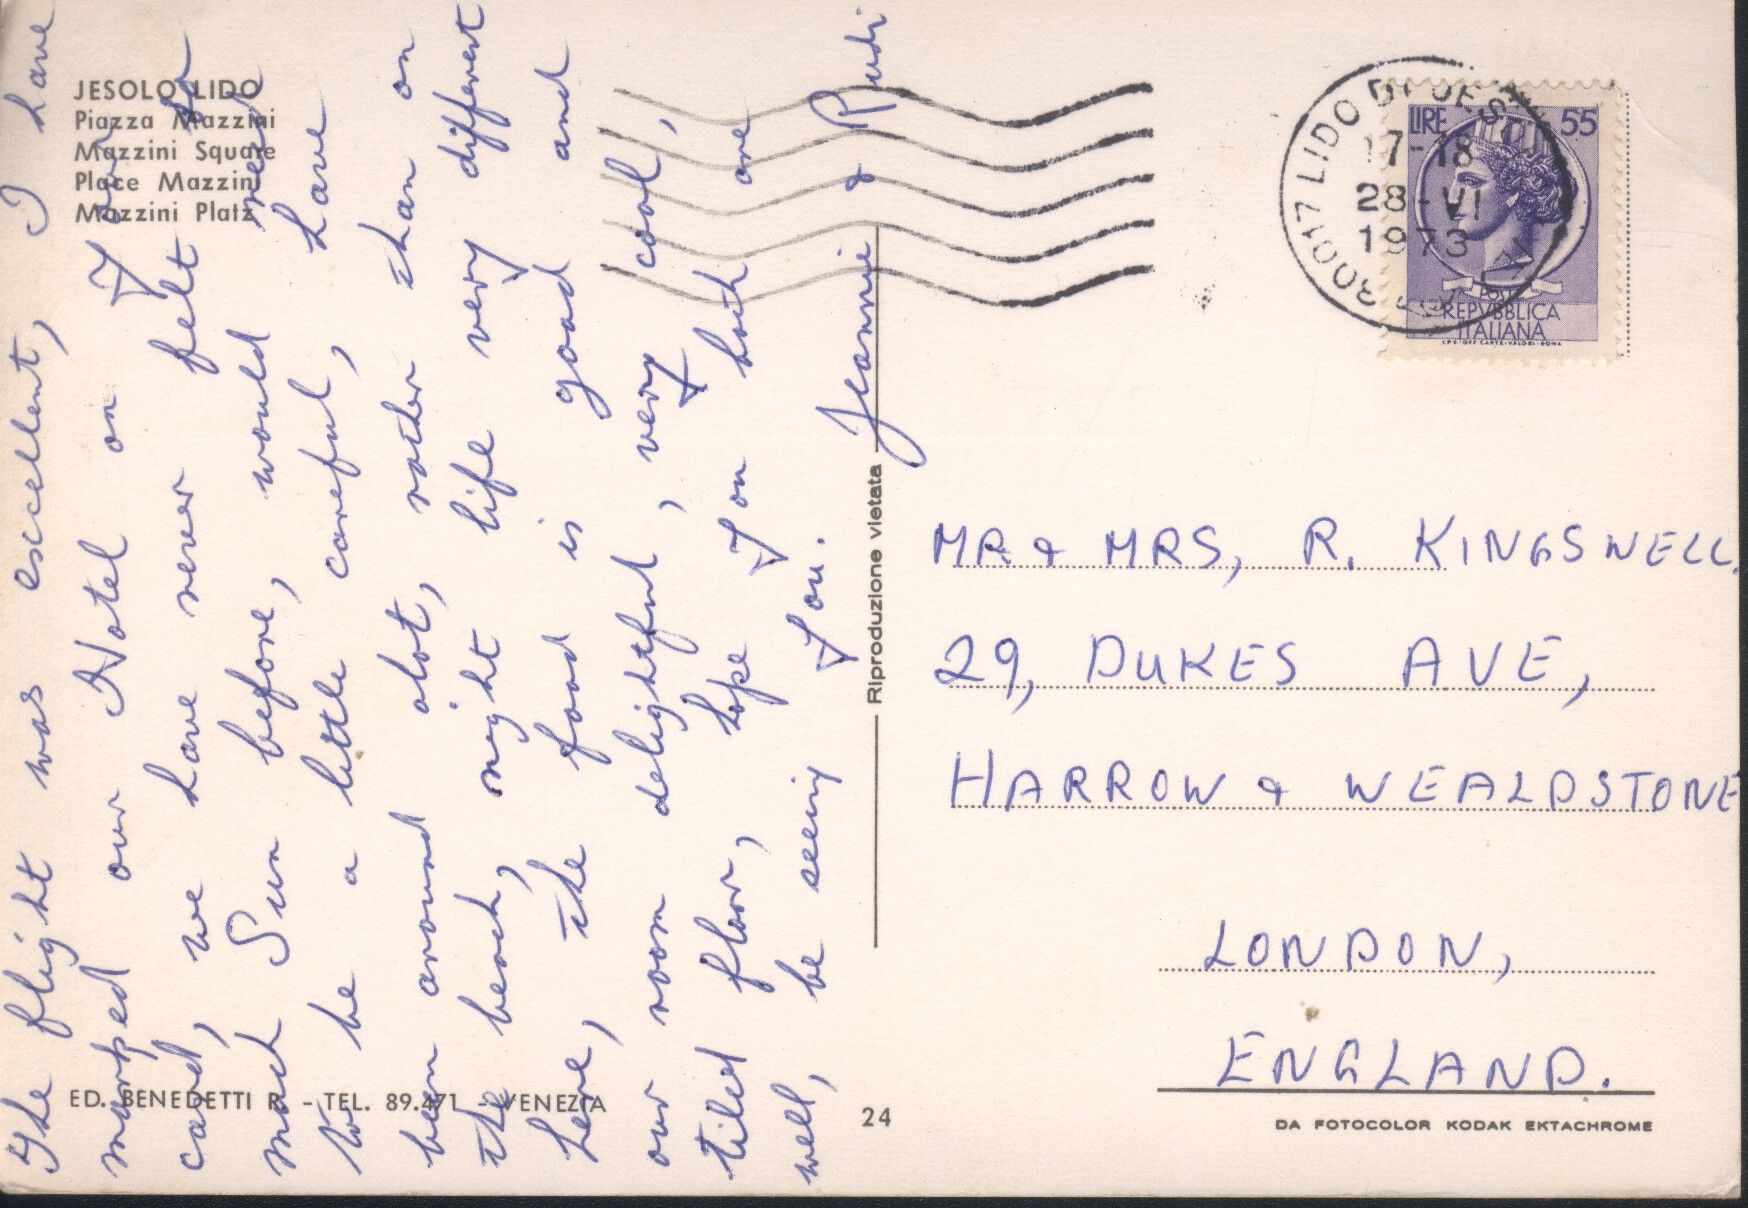 JESOLO LIDO
Piazza Mazzini
Mazzini Square
Place Mazzini
Mazzini Platz
The flight was excellent, I have
marked our Hotel on your
card, we have never felt so
much Sun before, would need
to be a little careful, have
been around alot, rather than on
the beach, night life very different
here, the food is good and
our room delightful, very cool,
tiled floor, hope you both are
well, be seeing you.
Jeannie & Rudi
ED. BENEDETTI R. - TEL. 89.471 - VENEZIA
24
Riproduzione vietata
30017 LIDO DI JESOLO
17-18
28-VI
1973
LIRE 55
POSTE
REPVBBLICA
ITALIANA
I.P.S.-OFF. CARTE-VALORI-ROMA
MR & MRS, R. KINGSWELL.
29, DUKES AVE,
HARROW & WEALDSTONE
LONDON,
ENGLAND.
DA FOTOCOLOR KODAK EKTACHROME